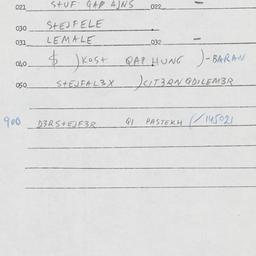 021 STUF QAP AJNS 022 –
030 STEJFELE
031 LEMALE 032 –
040 $ )KOST QAP HUNG )-BARAN
050 STEJFALEX )CIT3RNQDILEM3R
900 D3RSTEJF3R QI PASTEKH (/145021